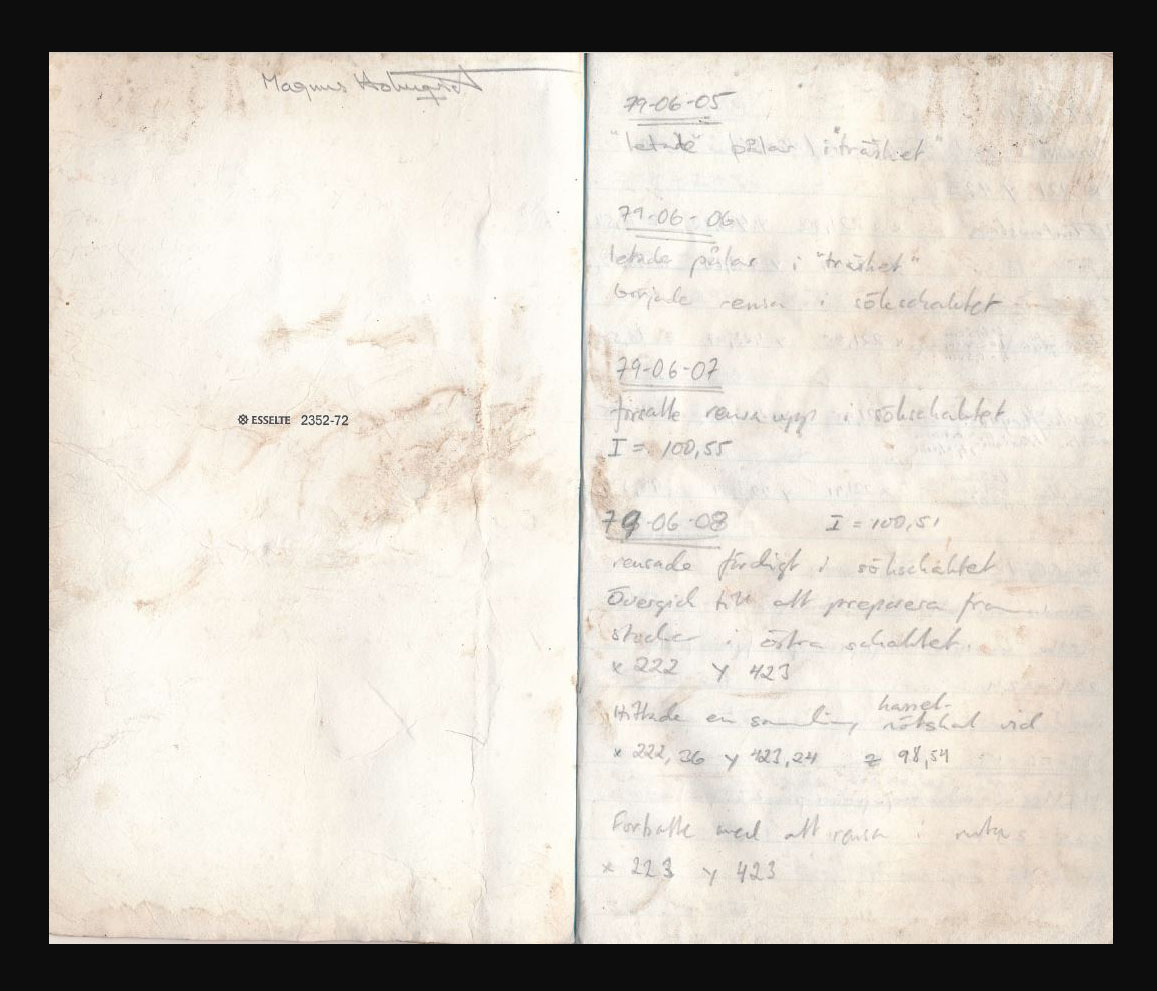 Magnus Holmqvist
ESSELTE 2352-72
79-06-05
"letade" pålar i "träsket"
79-06-06
letade pålar i "träsket"
började rensa i sökschaktet
79-06-07
forsatte rensa upp i sökschaktet
I = 100,55
79-06-08 I = 100,51
rensade färdigt i sökschaktet
Övergick till att preparera fram
stockar i östra schaktet.
x 222 y 423
Hittade en samling hassel-
nötskal vid
x 222,36 y 423,24 z 98,54
Forsatte med att rensa i ruta
x 223 y 423